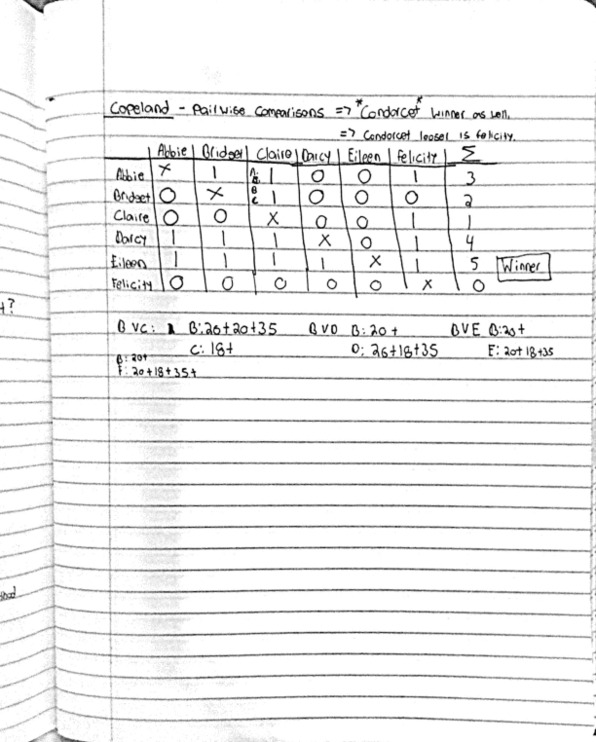 Copeland - Pairwise Comparisons => *Condorcet* winner as well.
=> Condorcet looser is felicity.
Abbie Bridget Claire Darcy Eileen Felicity Σ
Abbie X 1 A: B: 1 0 0 1 3
Bridget 0 X B C 1 0 0 0 2
Claire 0 0 X 0 0 1 1
Darcy 1 1 1 X 0 1 4
Eileen 1 1 1 1 X 1 5 Winner
Felicity 0 0 0 0 0 X 0
B VC: B: 26+20+35 B VD B: 20+ B VE B: 20+
C: 18+ D: 26+18+35 E: 20+18+35
B: 20+
F: 20+18+35+
t?